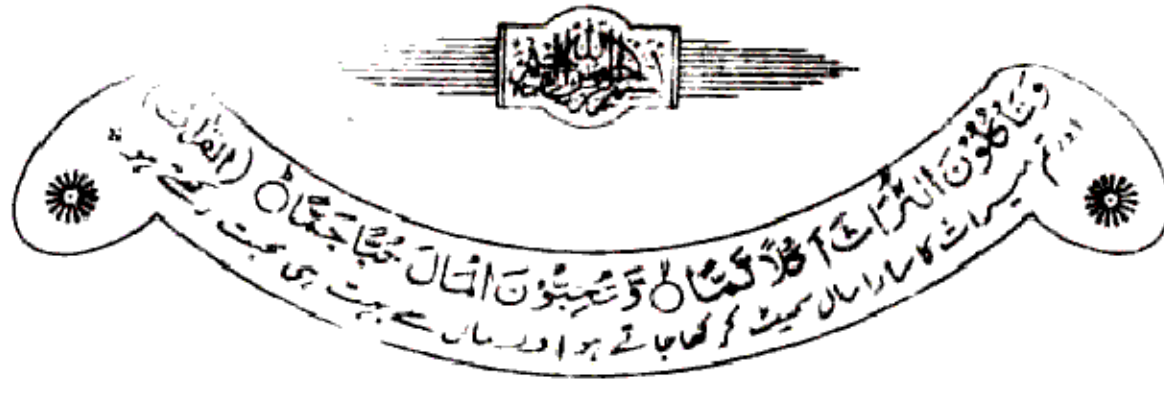 بسم الله الرحمن الرحيم
وَتَأْكُلُوْنَ التُّرَاثَ اَكْلًا لَّمًّا ○ وَّتُحِبُّوْنَ الْمَالَ حُبًّا جَمًّا ○ (القرآن)
اور تم میراث کا سارا مال سمیٹ کر کھا جاتے ہو اور مال سے بہت ہی محبت رکھتے ہو